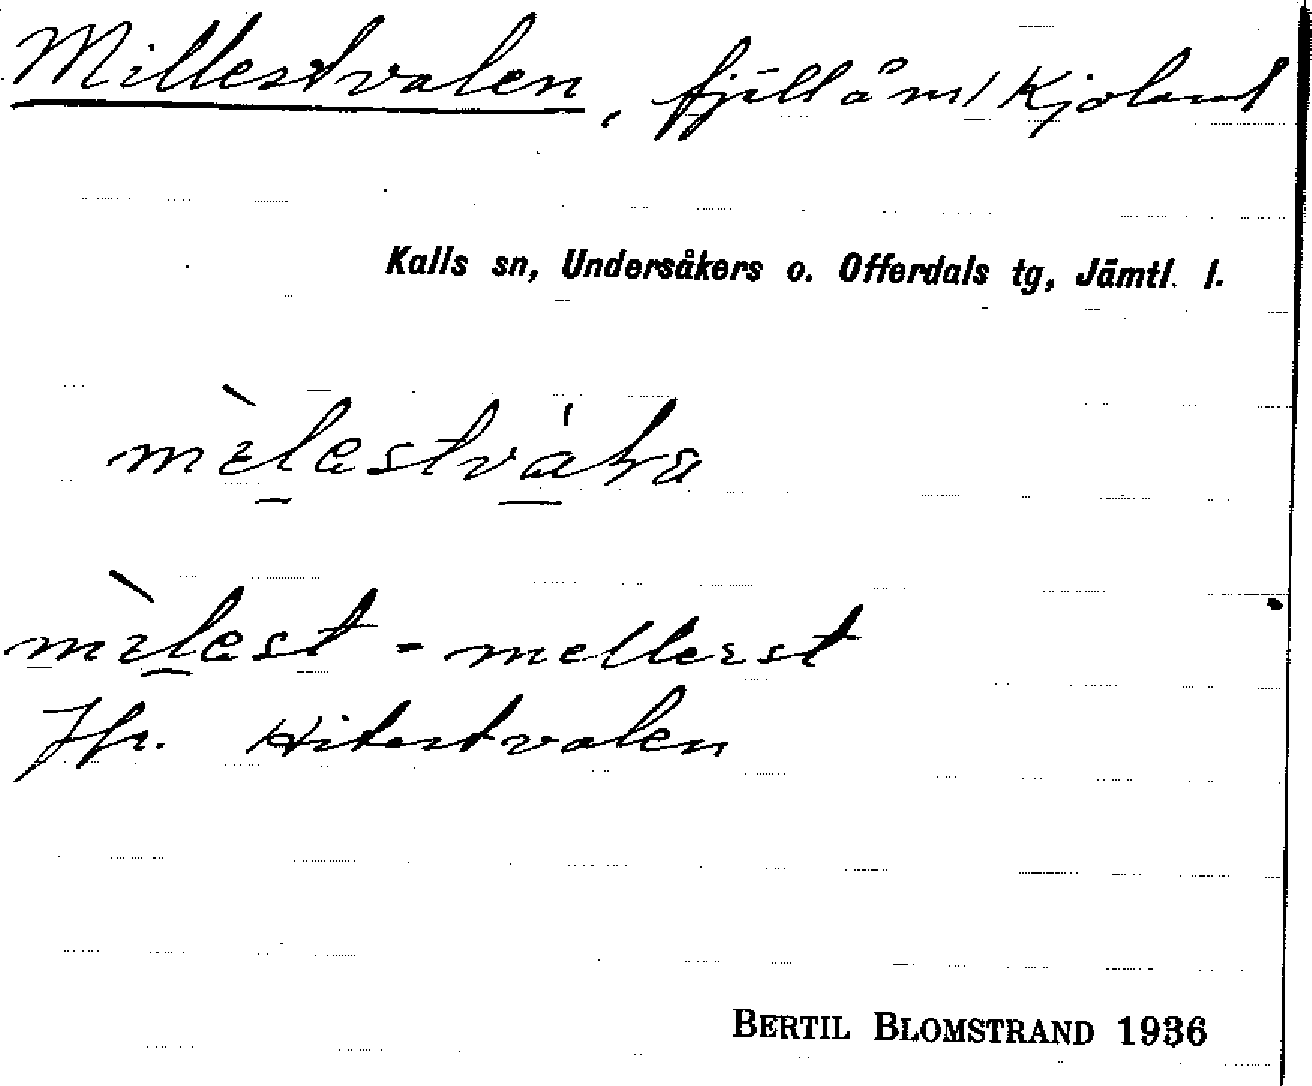 Millestvalen, fjällåm/Kjoland
Kalls sn, Undersåkers o. Offerdals tg, Jämtl. l.
mìlestváła
mìlest - mellerst
Jfr. Hitestvalen
BERTIL BLOMSTRAND 1936